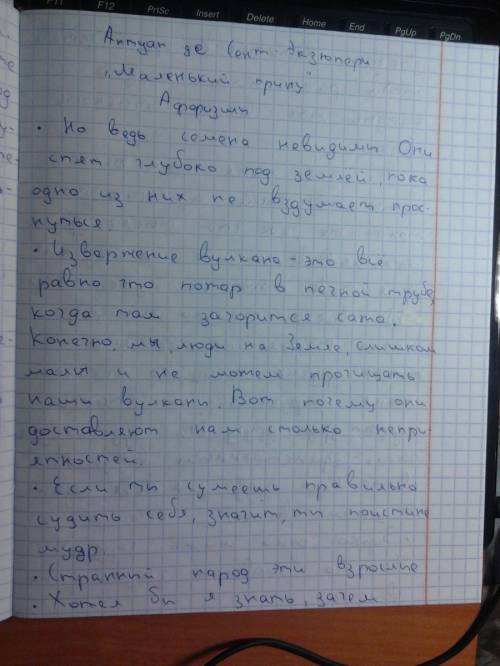 F11 F12 PrtSc Insert Delete Home End PgUp PgDn
Антуан де Сент-Экзюпери
„Маленький принц"
Афоризмы
• Но ведь семена невидимы. Они
спят глубоко под землей, пока
одно из них не вздумает прос-
нуться.
• Извержение вулкана - это всё
равно что пожар в печной трубе,
когда там загорится сажа.
Конечно, мы, люди на Земле, слишком
малы и не можем прочищать
наши вулканы. Вот почему они
доставляют нам столько непри-
ятностей.
• Если ты сумеешь правильно
судить себя, значит, ты поистине
мудр.
• Странный народ эти взрослые
• Хотел бы я знать, зачем